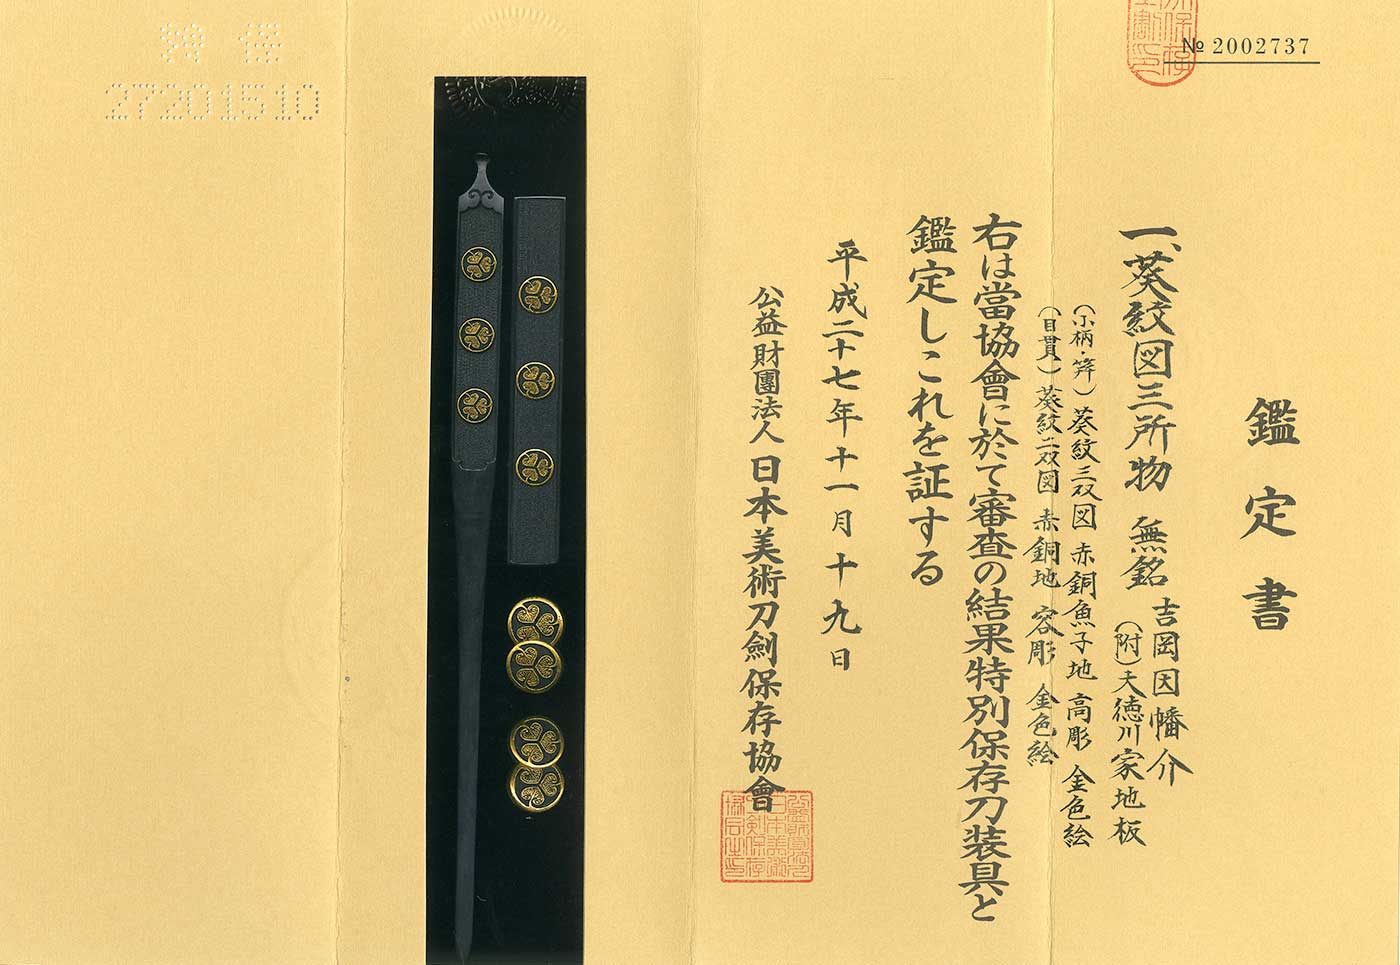 № 2002737
鑑定書
一、葵紋図三所物 無銘 吉岡因幡介
(附)天徳川家地板
(小柄・笄)葵紋三双図 赤銅魚子地 高彫 金色絵
(目貫)葵紋二双図 赤銅地 容彫 金色絵
右は當協會に於て審査の結果特別保存刀装具と
鑑定しこれを証する
平成二十七年十一月十九日
公益財團法人日本美術刀劍保存協會
特保
27201510